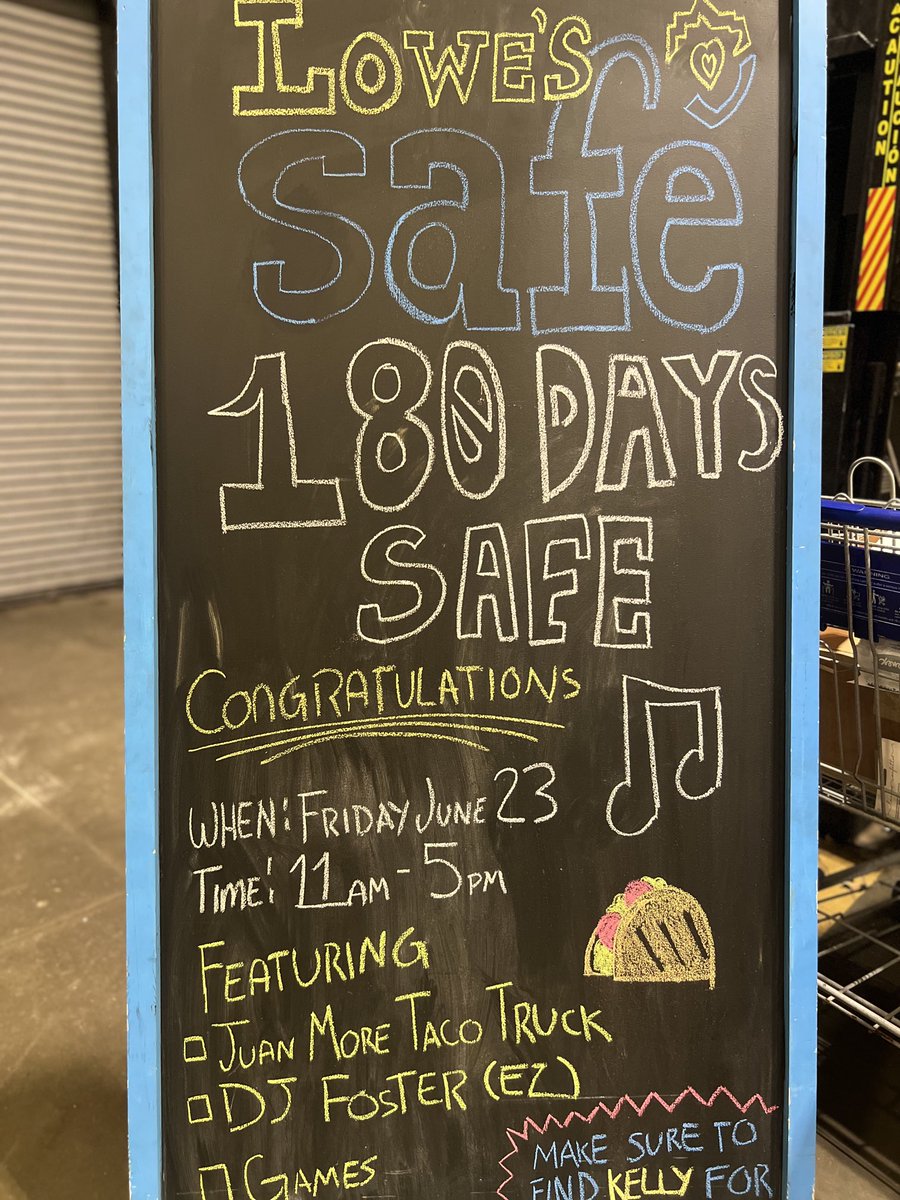 LOWE'S
Safe
180 DAYS
SAFE
CONGRATULATIONS
WHEN: FRIDAY JUNE 23
TIME: 11AM - 5PM
FEATURING
JUAN MORE TACO TRUCK
DJ FOSTER (EZ)
GAMES
MAKE SURE TO
FIND KELLY FOR
CAUTION
WARNING